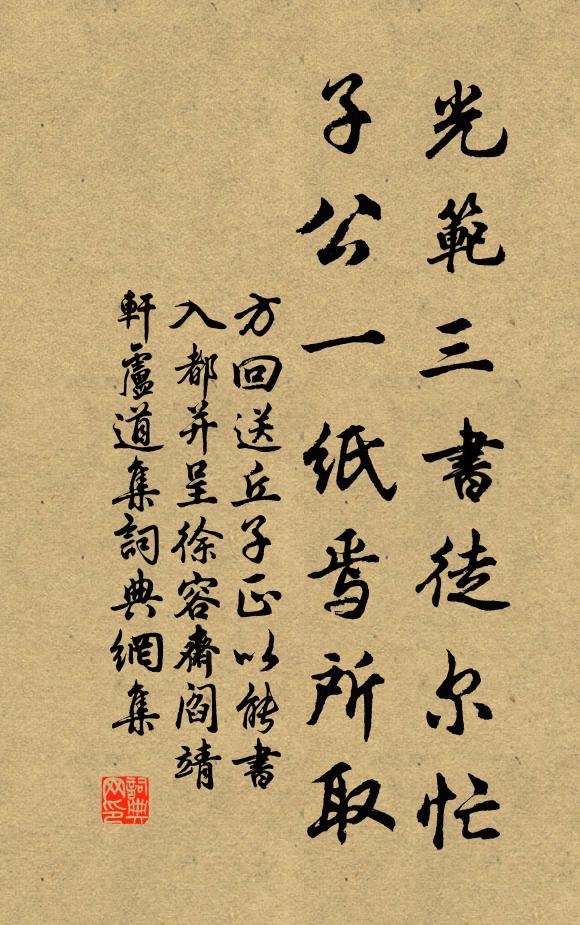 光範三書徒尔忙
子公一紙焉所取
方回送丘子正以能書
入都并呈徐容齋閻靖
軒盧道集詞典網集
詞典网印